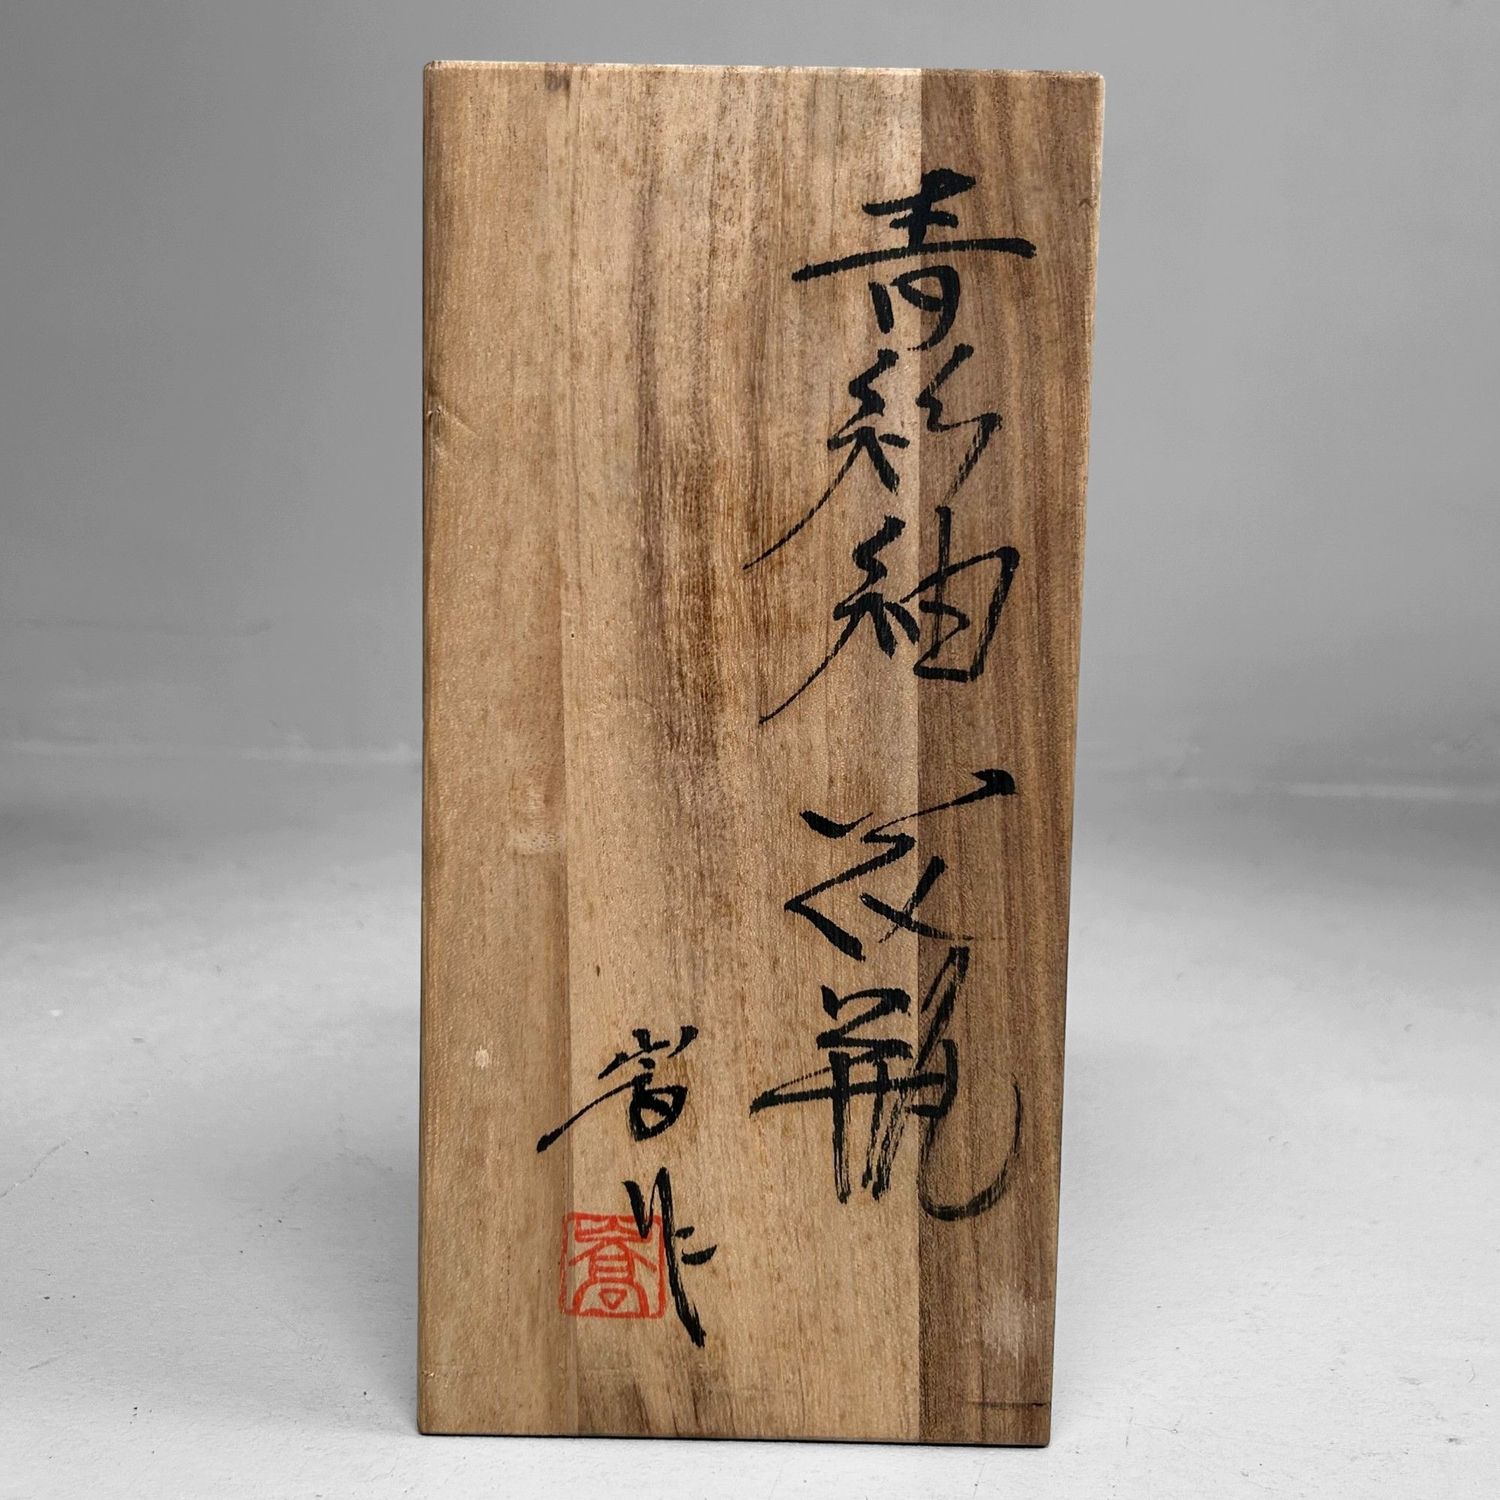 青彩釉 花瓶
嵩作